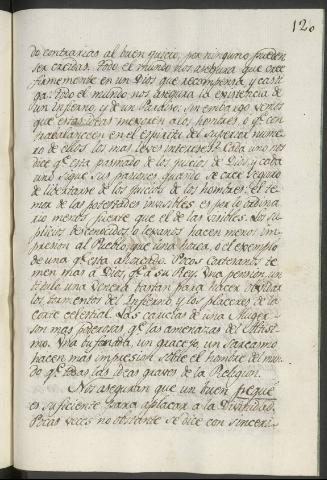 120
do contrarias al buen juicio, por ninguno pueden
ser creidas. Todo el mundo nos asegura que cree
firmemente en un Dios que recompensa, y casti
ga: Todo el mundo nos asegura la existencia de
un Infierno, y de un Paraiso. Sin embargo vemos
que estas ideas mejoren a los hombres, o qe. con
trabalanceen en el espiritu del Superior nume
ro de ellos los mas leves intereses? Cada uno nos
dice qe. está pasmado de los juicios de Dios, y cada
uno sigue sus pasiones quando se cree seguro
de libertarse de los juicios de los hombres: el te
mor de las potestades invisibles es por lo ordina
rio menos fuerte que el de las visibles. Los su
plicios desconocidos, o lexanos hacen menos im
presion al Pueblo, que una horca, o el exemplo
de una qe. está ahorcado. Pocos cortesanos te
men mas a Dios, qe. a su Rey. Una pension, un
titulo, una Venera bastan para hacer olvidar
los tormentos del Infierno, y los placeres de la
corte celestial. Las caricias de una Muger
son mas poderosas qe. las amenazas del Altisi
mo. Una bufonada, un gracejo, un sarcasmo
hacen mas impresion sobre el hombre del mun
do qe. todas las ideas graves de la Religion.
Nos aseguran que un buen pequé
es suficiente para aplacar a la Divinidad.
Pocas veces no obstante se dice con sinceri